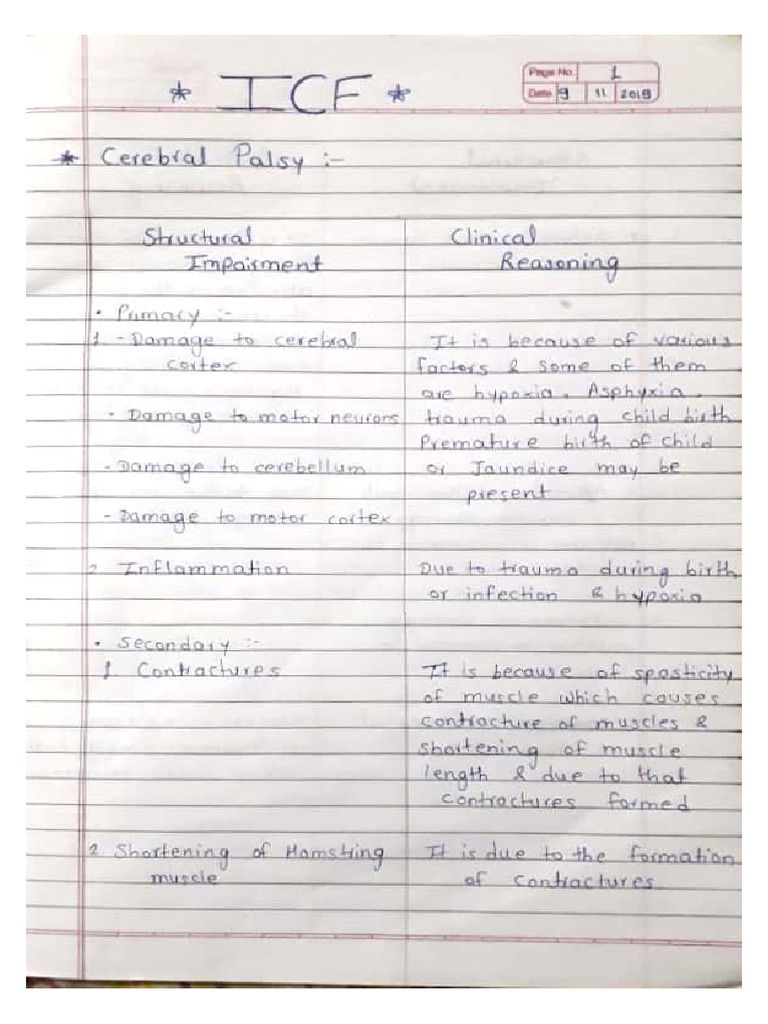 * ICF *
Page No. 1
Date 9 11 2019
* Cerebral Palsy :-
Structural Impairment
Clinical Reasoning
• Primary :-
1 - Damage to cerebral
cortex
- Damage to motor neurons
- Damage to cerebellum
- Damage to motor cortex
It is because of various
factors & some of them
are hypoxia, Asphyxia,
trauma during child birth
Premature birth of child
or Jaundice may be
present
2 Inflammation
Due to trauma during birth
or infection & hypoxia
• Secondary :-
1 Contractures
It is because of spasticity
of muscle which causes
contracture of muscles &
shortening of muscle
length & due to that
contractures formed
2 Shortening of Hamstring
muscle
It is due to the formation
of contractures